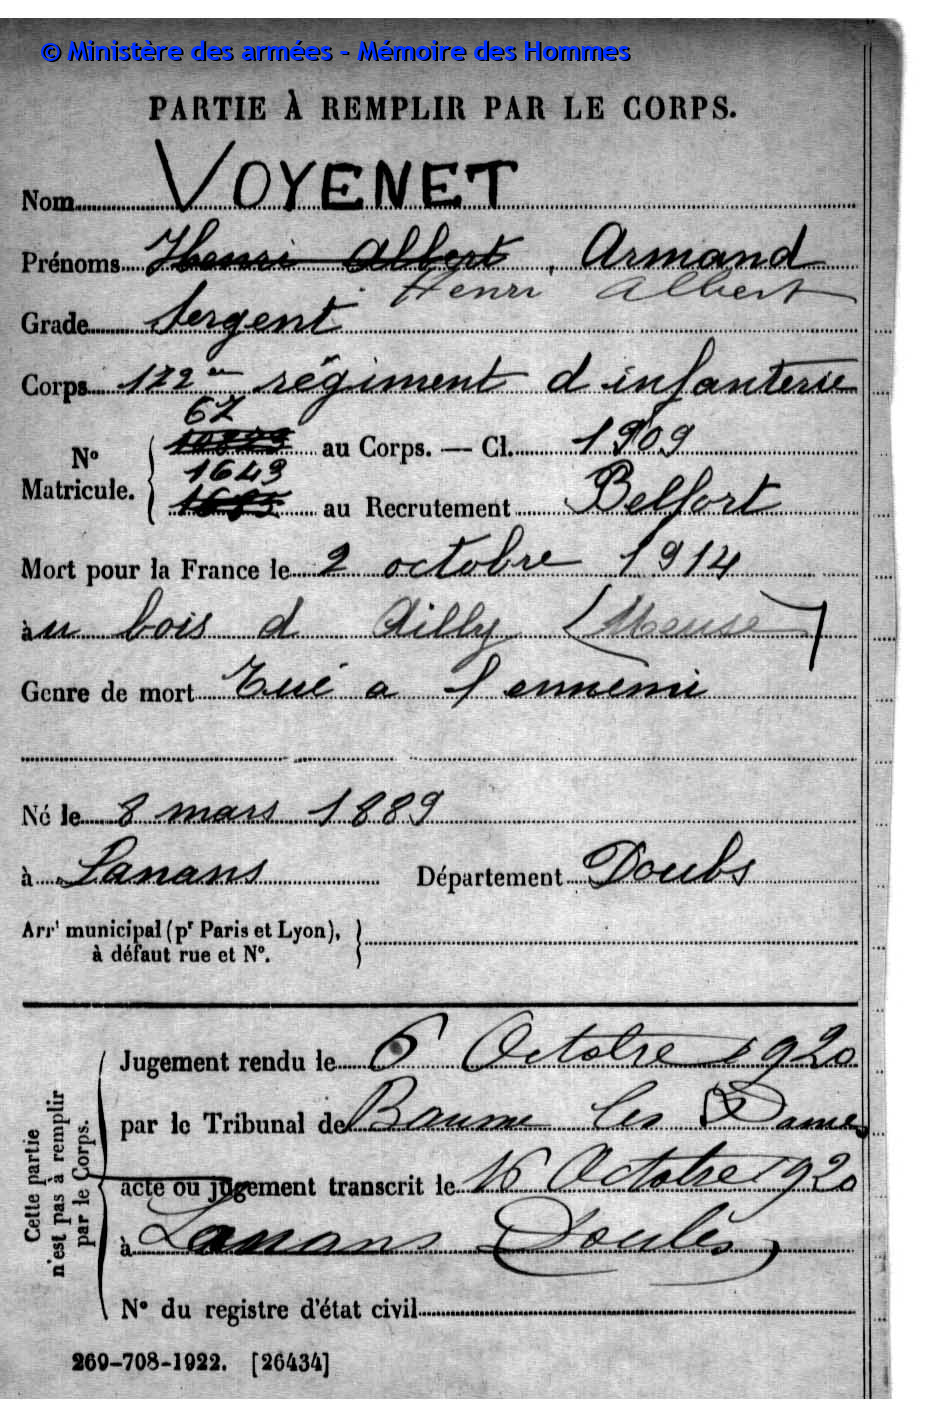 © Ministère des armées - Mémoire des Hommes
PARTIE À REMPLIR PAR LE CORPS.
Nom VOYENET
Prénoms Henri Albert, Armand
Henri Albert
Grade Sergent
Corps 172e régiment d infanterie
67
N° Matricule. au Corps. — Cl. 1909
1643
1685 au Recrutement Belfort
Mort pour la France le 2 octobre 1914
àu bois d Ailly (Meuse)
Genre de mort Tué a l ennemi
Né le 8 mars 1889
à Lanans Département Doubs
Arr¹ municipal (pʳ Paris et Lyon),
à défaut rue et N°.
Cette partie n'est pas à remplir par le Corps.
Jugement rendu le 6 Octobre 1920
par le Tribunal de Baume les Dames
acte ou jugement transcrit le 16 Octobre 1920
à Lanans Doubs
N° du registre d'état civil
269-708-1922. [26434]